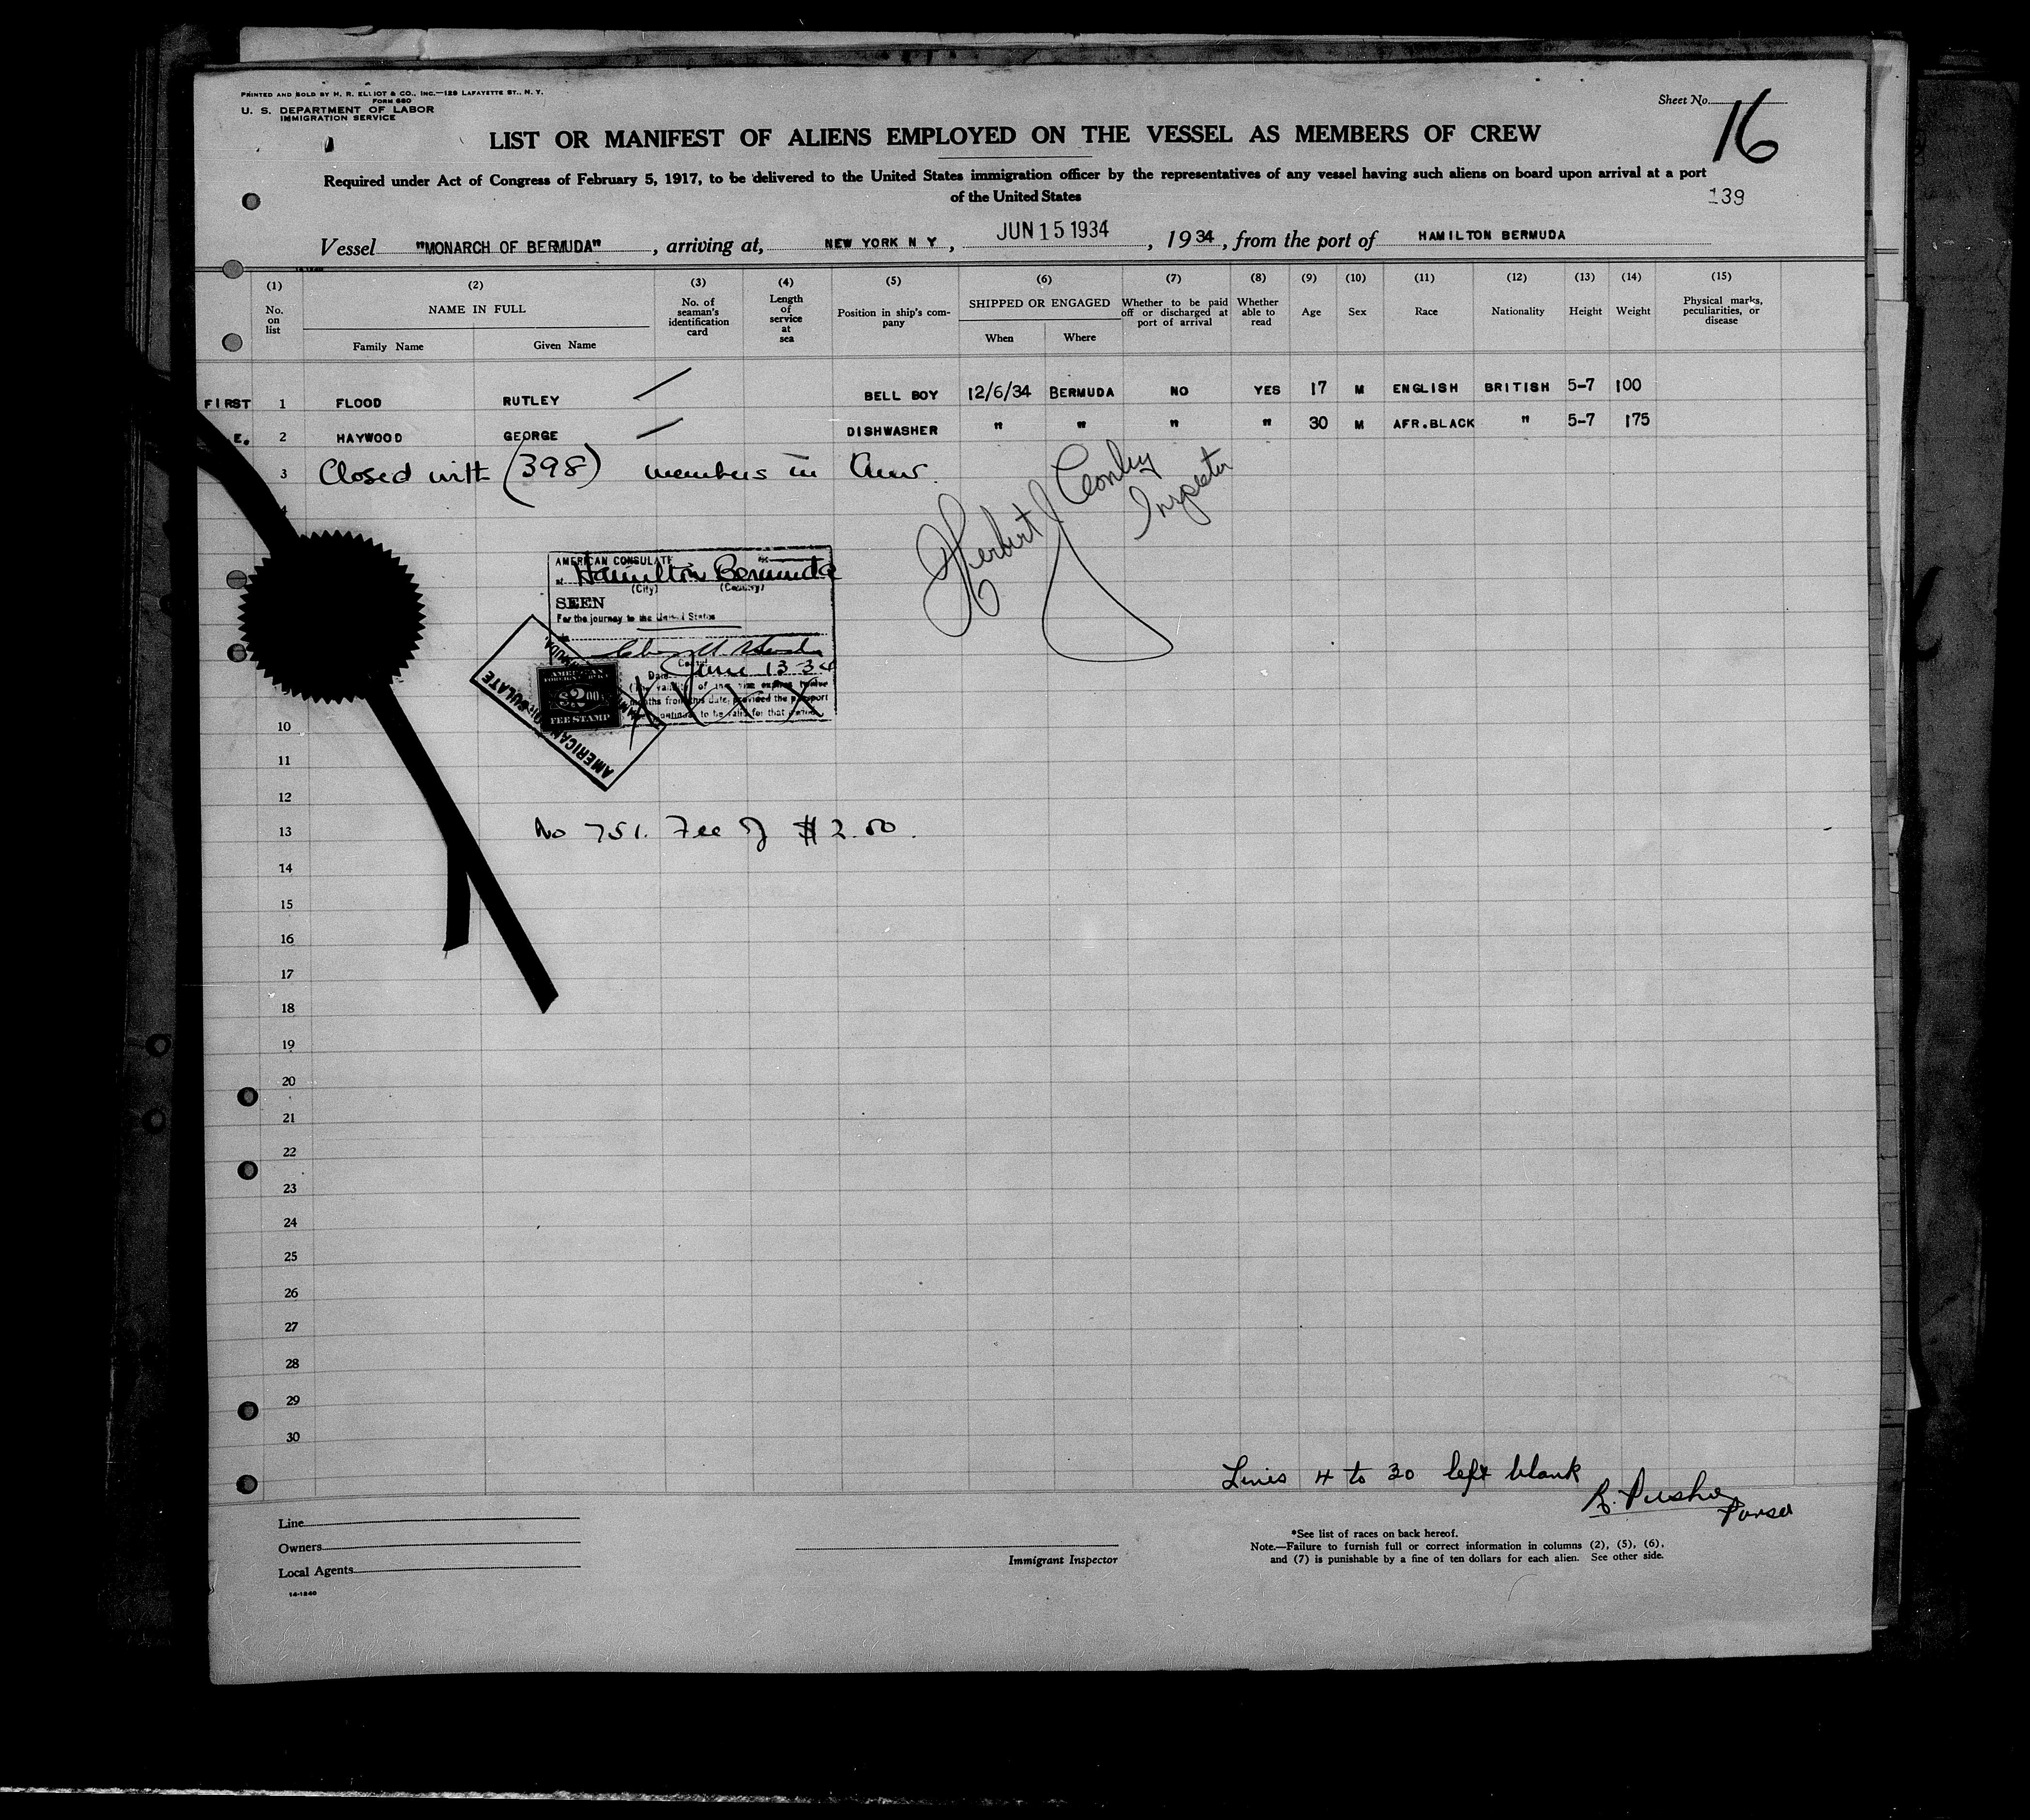 PRINTED AND SOLD BY H. R. ELLIOT & CO., INC.—129 LAFAYETTE ST., N. Y.
FORM 680
U. S. DEPARTMENT OF LABOR
IMMIGRATION SERVICE
Sheet No. 16
LIST OR MANIFEST OF ALIENS EMPLOYED ON THE VESSEL AS MEMBERS OF CREW
Required under Act of Congress of February 5, 1917, to be delivered to the United States immigration officer by the representatives of any vessel having such aliens on board upon arrival at a port
of the United States
139
Vessel "MONARCH OF BERMUDA", arriving at, NEW YORK N Y, JUN 15 1934, 1934, from the port of HAMILTON BERMUDA
(1) (2) (3) (4) (5) (6) (7) (8) (9) (10) (11) (12) (13) (14) (15)
No. on list NAME IN FULL No. of seaman's identification card Length of service at sea Position in ship's company SHIPPED OR ENGAGED Whether to be paid off or discharged at port of arrival Whether able to read Age Sex Race Nationality Height Weight Physical marks, peculiarities, or disease
Family Name Given Name When Where
FIRST 1 FLOOD RUTLEY BELL BOY 12/6/34 BERMUDA NO YES 17 M ENGLISH BRITISH 5-7 100
E. 2 HAYWOOD GEORGE DISHWASHER " " " " 30 M AFR.BLACK " 5-7 175
3 Closed with (398) members in Crew.
Herbert J Conley
Inspector
4
AMERICAN CONSULATE
at Hamilton Bermuda
(City) (Country)
SEEN
For the journey to the United States
Consul
Date June 13-34
(The validity of the visa expires twelve
months from this date, provided the passport
continues to be valid for that period.
AMERICAN
$2.00
FEE STAMP
AMERICAN CONSULATE
10
11
12
13 No 751. Fee of $2.00.
14
15
16
17
18
19
20
21
22
23
24
25
26
27
28
29
30
Lines 4 to 30 left blank
Purser
Line
Owners
Local Agents
14-1240
Immigrant Inspector
*See list of races on back hereof.
Note.—Failure to furnish full or correct information in columns (2), (5), (6),
and (7) is punishable by a fine of ten dollars for each alien. See other side.